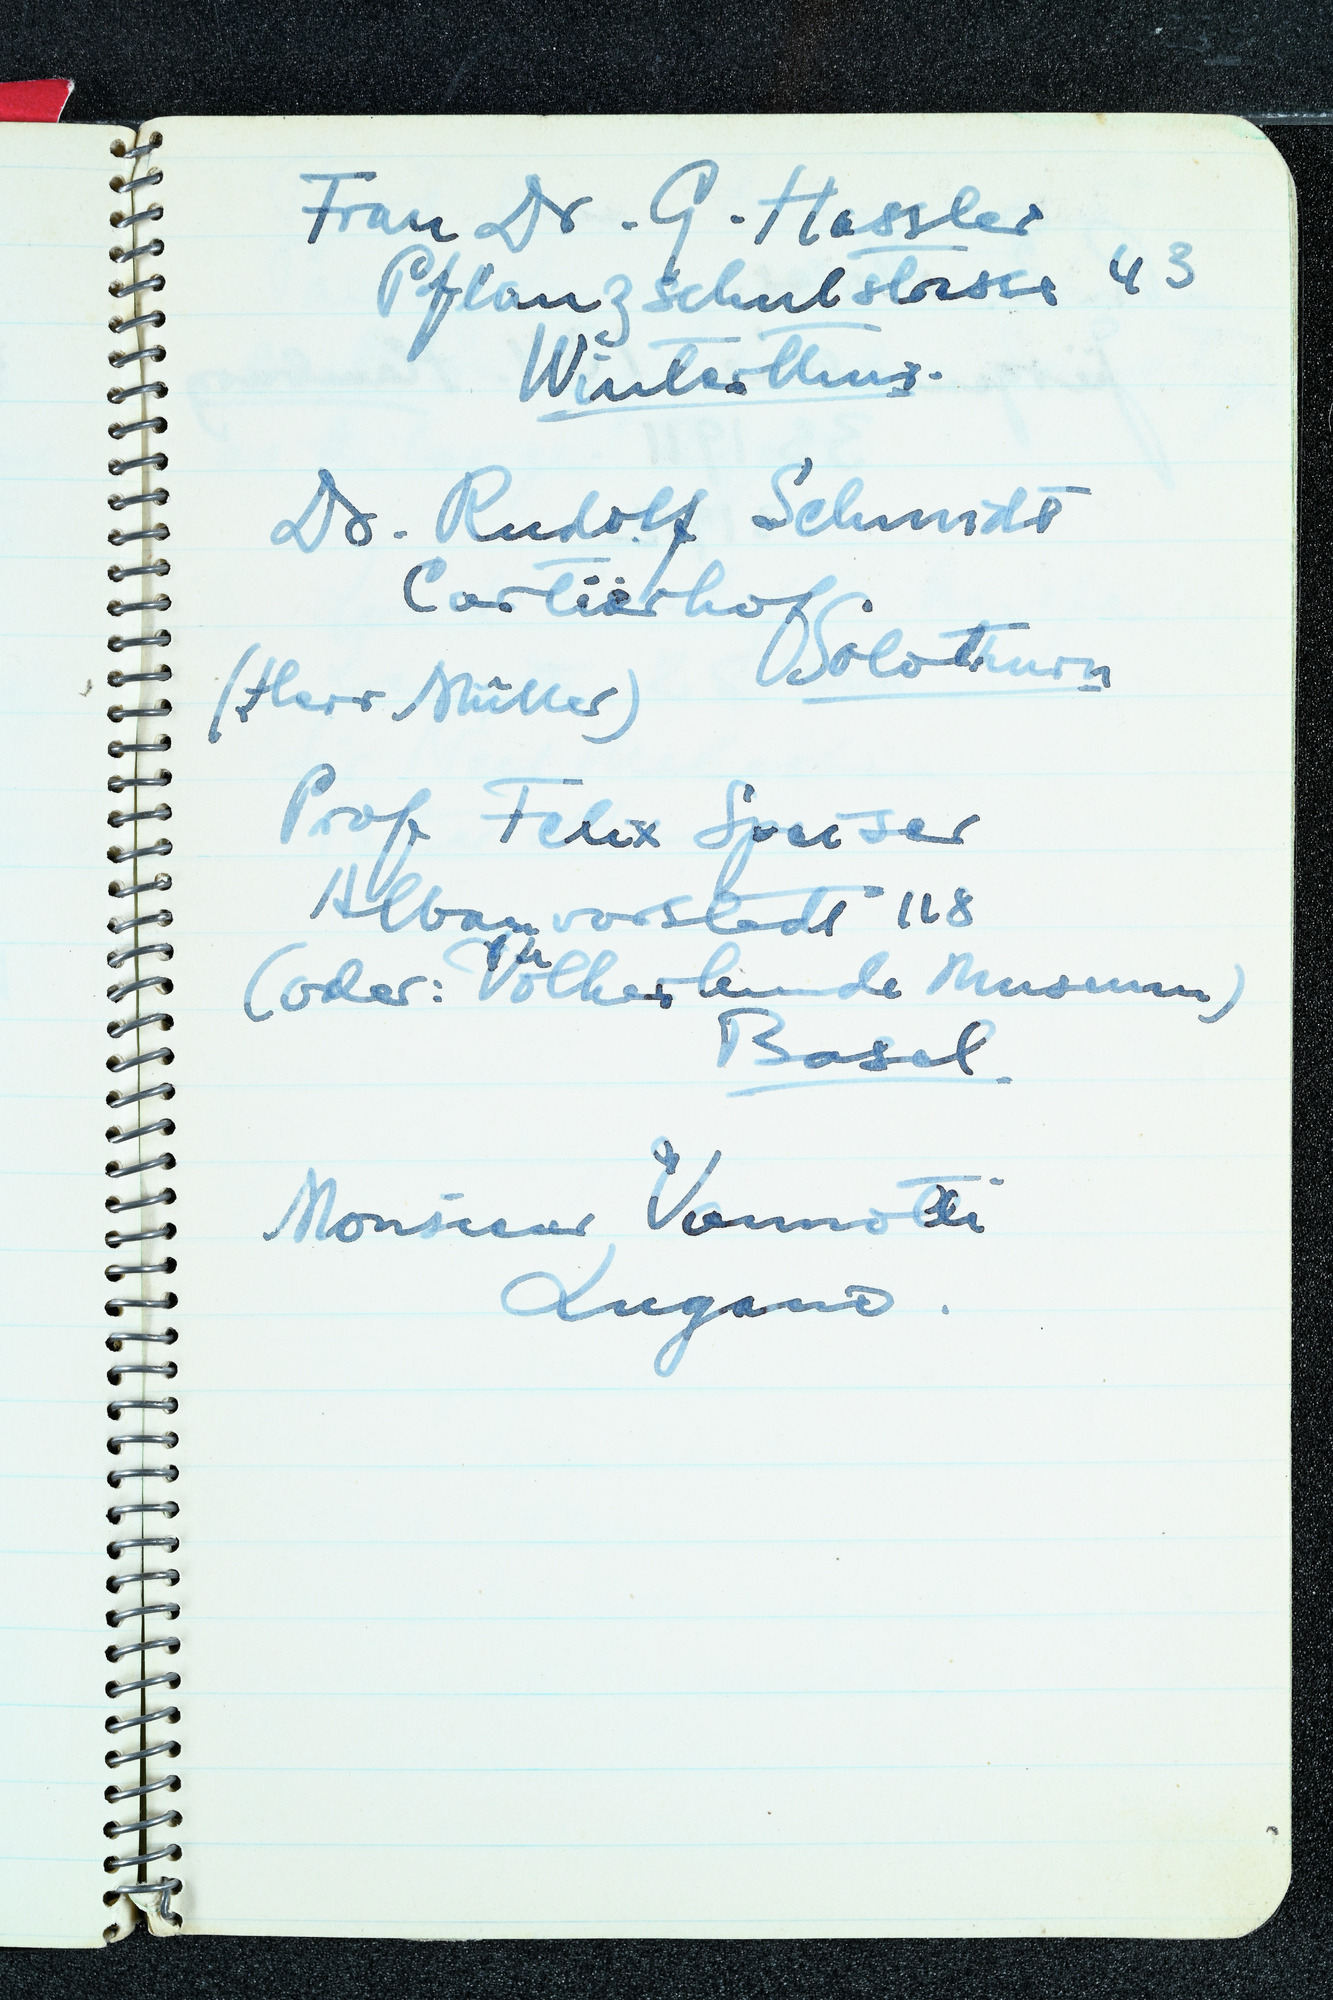 Frau Dr. G. Hassler
Pflanzschulstrasse 43
Winterthur.
Dr. Rudolf Schmidt
Cartierhof
Solothurn
(Herr Müller)
Prof Felix Speiser
Albanvorstadt 118
(oder: Völkerkunde Museum)
Basel.
Monsieur Vannotti
Lugano.